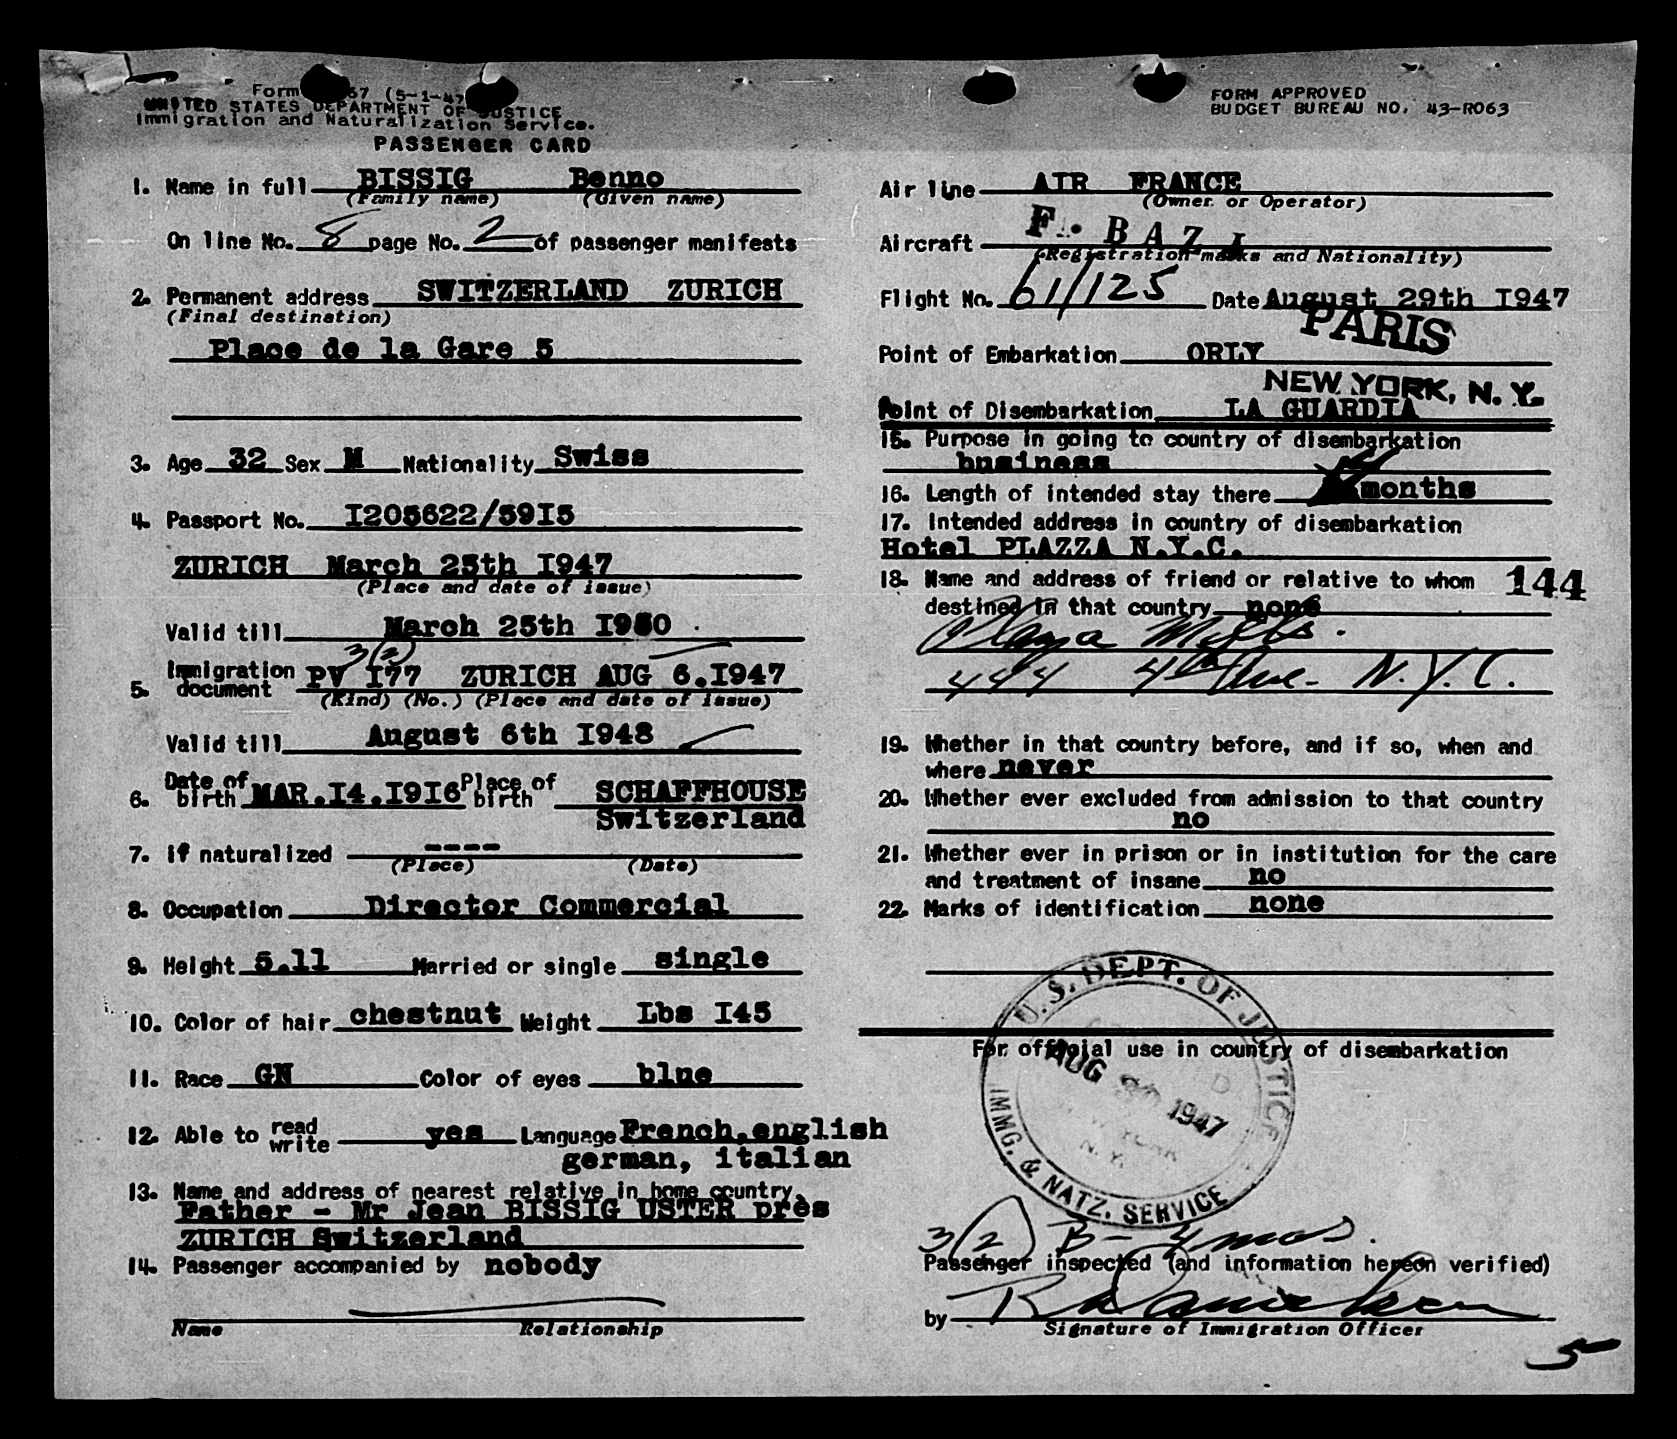 Form 57 (5-1-47
UNITED STATES DEPARTMENT OF JUSTICE
Immigration and Naturalization Service.
PASSENGER CARD
1. Name in full BISSIG Benno
(Family name) (Given name)
On line No. 8 page No. 2 of passenger manifests
2. Permanent address SWITZERLAND ZURICH
(Final destination)
Place de la Gare 5
3. Age 32 Sex M Nationality Swiss
4. Passport No. I205622/59I5
ZURICH March 25th I947
(Place and date of issue)
Valid till March 25th I950
3(2)
5. Immigration document PV I77 ZURICH AUG 6.I947
(Kind) (No.) (Place and date of issue)
Valid till August 6th I948
6. Date of birth MAR.I4.I9I6 Place of birth SCHAFFHOUSE
Switzerland
7. If naturalized ----
(Place) (Date)
8. Occupation Director Commercial
9. Height 5.11 Married or single single
10. Color of hair chestnut Weight Lbs I45
11. Race GN Color of eyes blue
12. Able to read write yes Language French,english
german, italian
13. Name and address of nearest relative in home country.
Father - Mr Jean BISSIG USTER près
ZURICH Switzerland
14. Passenger accompanied by nobody
Name Relationship
FORM APPROVED
BUDGET BUREAU NO. 43-R063
Air line AIR FRANCE
(Owner or Operator)
Aircraft F. BAZI
(Registration marks and Nationality)
Flight No. 61/125 Date August 29th I947
PARIS
Point of Embarkation ORLY
NEW YORK, N. Y.
Point of Disembarkation LA GUARDIA
15. Purpose in going to country of disembarkation
business
16. Length of intended stay there months
17. Intended address in country of disembarkation
Hotel PLAZZA N.Y.C.
18. Name and address of friend or relative to whom 144
destined in that country none
Mills.
444 4th Ave. N.Y.C.
19. Whether in that country before, and if so, when and
where never
20. Whether ever excluded from admission to that country
no
21. Whether ever in prison or in institution for the care
and treatment of insane no
22. Marks of identification none
For official use in country of disembarkation
U.S. DEPT. OF JUSTICE
AUG 1947
IMMG. & NATZ. SERVICE
3(2) B- 4 mos.
Passenger inspected (and information hereon verified)
by
Signature of Immigration Officer
5